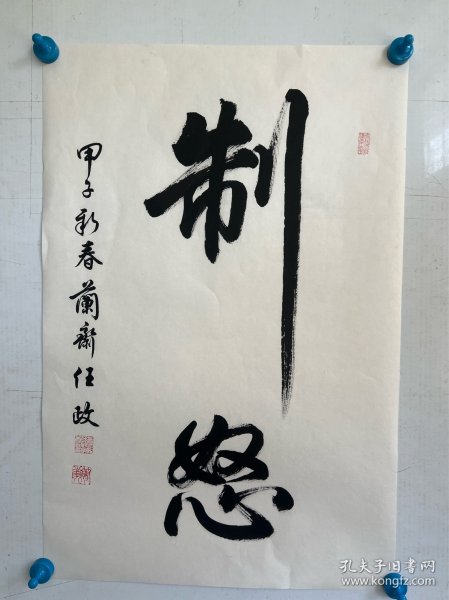 制怒
甲子新春蘭齋任政
孔夫子旧书网
www.kongfz.com